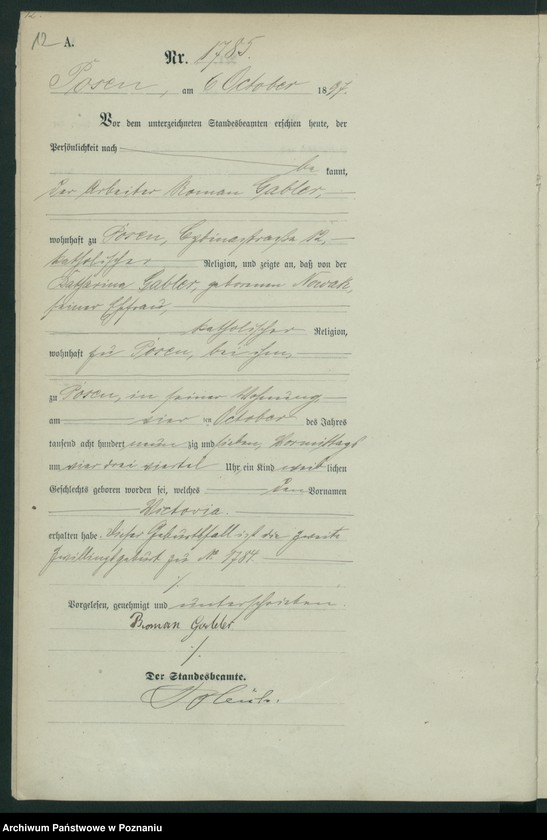 12 A.
Nr. 1785.
Posen, am 6 October 1897.
Vor dem unterzeichneten Standesbeamten erschien heute, der
Persönlichkeit nach
be kannt,
der Arbeiter Roman Gabler,
wohnhaft zu Posen, 12,
katholischer Religion, und zeigte an, daß von der
Katharina Gabler, geborenen Nowak,
seiner Ehefrau,
katholischer Religion,
wohnhaft zu Posen, bei ihm,
zu Posen, in seiner Wohnung
am vier ten October des Jahres
tausend acht hundert neunzig und sieben, Vormittags
um vier drei viertel Uhr ein Kind weiblichen
Geschlechts geboren worden sei, welches den Vornamen
Victoria
erhalten habe. Dieser Geburtsfall ist die zweite
Zwillingsgeburt zu N. 1784.
Vorgelesen, genehmigt und unterschrieben.
Roman Gabler
Der Standesbeamte.
Archiwum Państwowe w Poznaniu